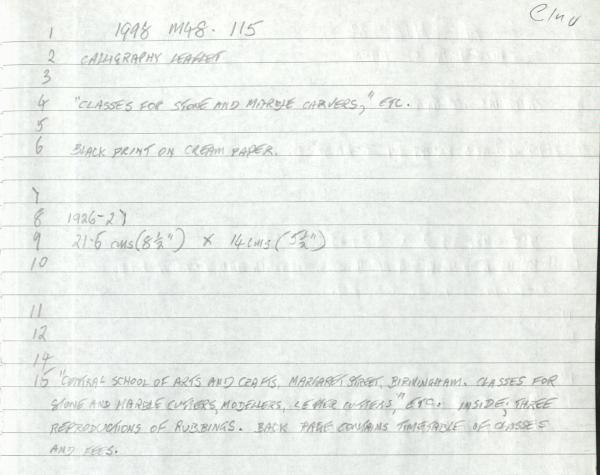 1 1998 M48. 115
2 CALLIGRAPHY LEAFLET
3
4 "CLASSES FOR STONE AND MARBLE CARVERS," ETC.
5
6 BLACK PRINT ON CREAM PAPER.
7
8 1926-27
9 21·6 cms (8½") x 14 cms (5½")
10
11
12
14
15 "CENTRAL SCHOOL OF ARTS AND CRAFTS, MARGARET STREET, BIRMINGHAM. CLASSES FOR
STONE AND MARBLE CUTTERS, MODELLERS, LETTER CUTTERS," ETC. INSIDE, THREE
REPRODUCTIONS OF RUBBINGS. BACK PAGE CONTAINS TIMETABLE OF CLASSES
AND FEES.